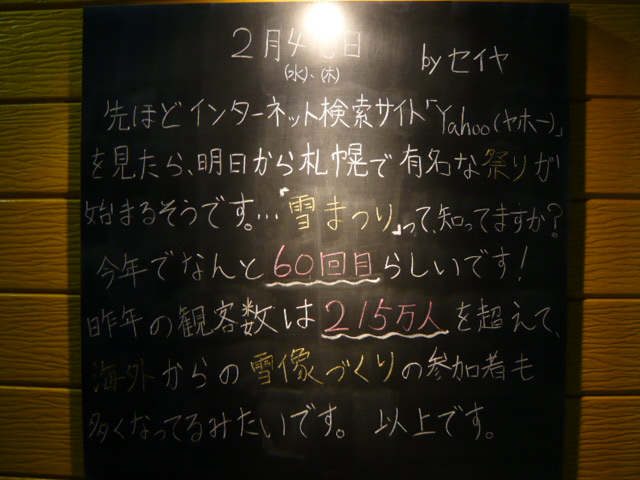 2月4、5日
(水)、(木)
byセイヤ
先ほどインターネット検索サイト「Yahoo(ヤホー)」
を見たら、明日から札幌で有名な祭りが
始まるそうです。…『雪まつり』って、知ってますか?
今年でなんと60回目らしいです!
昨年の観客数は215万人を超えて、
海外からの雪像づくりの参加者も
多くなってるみたいです。 以上です。